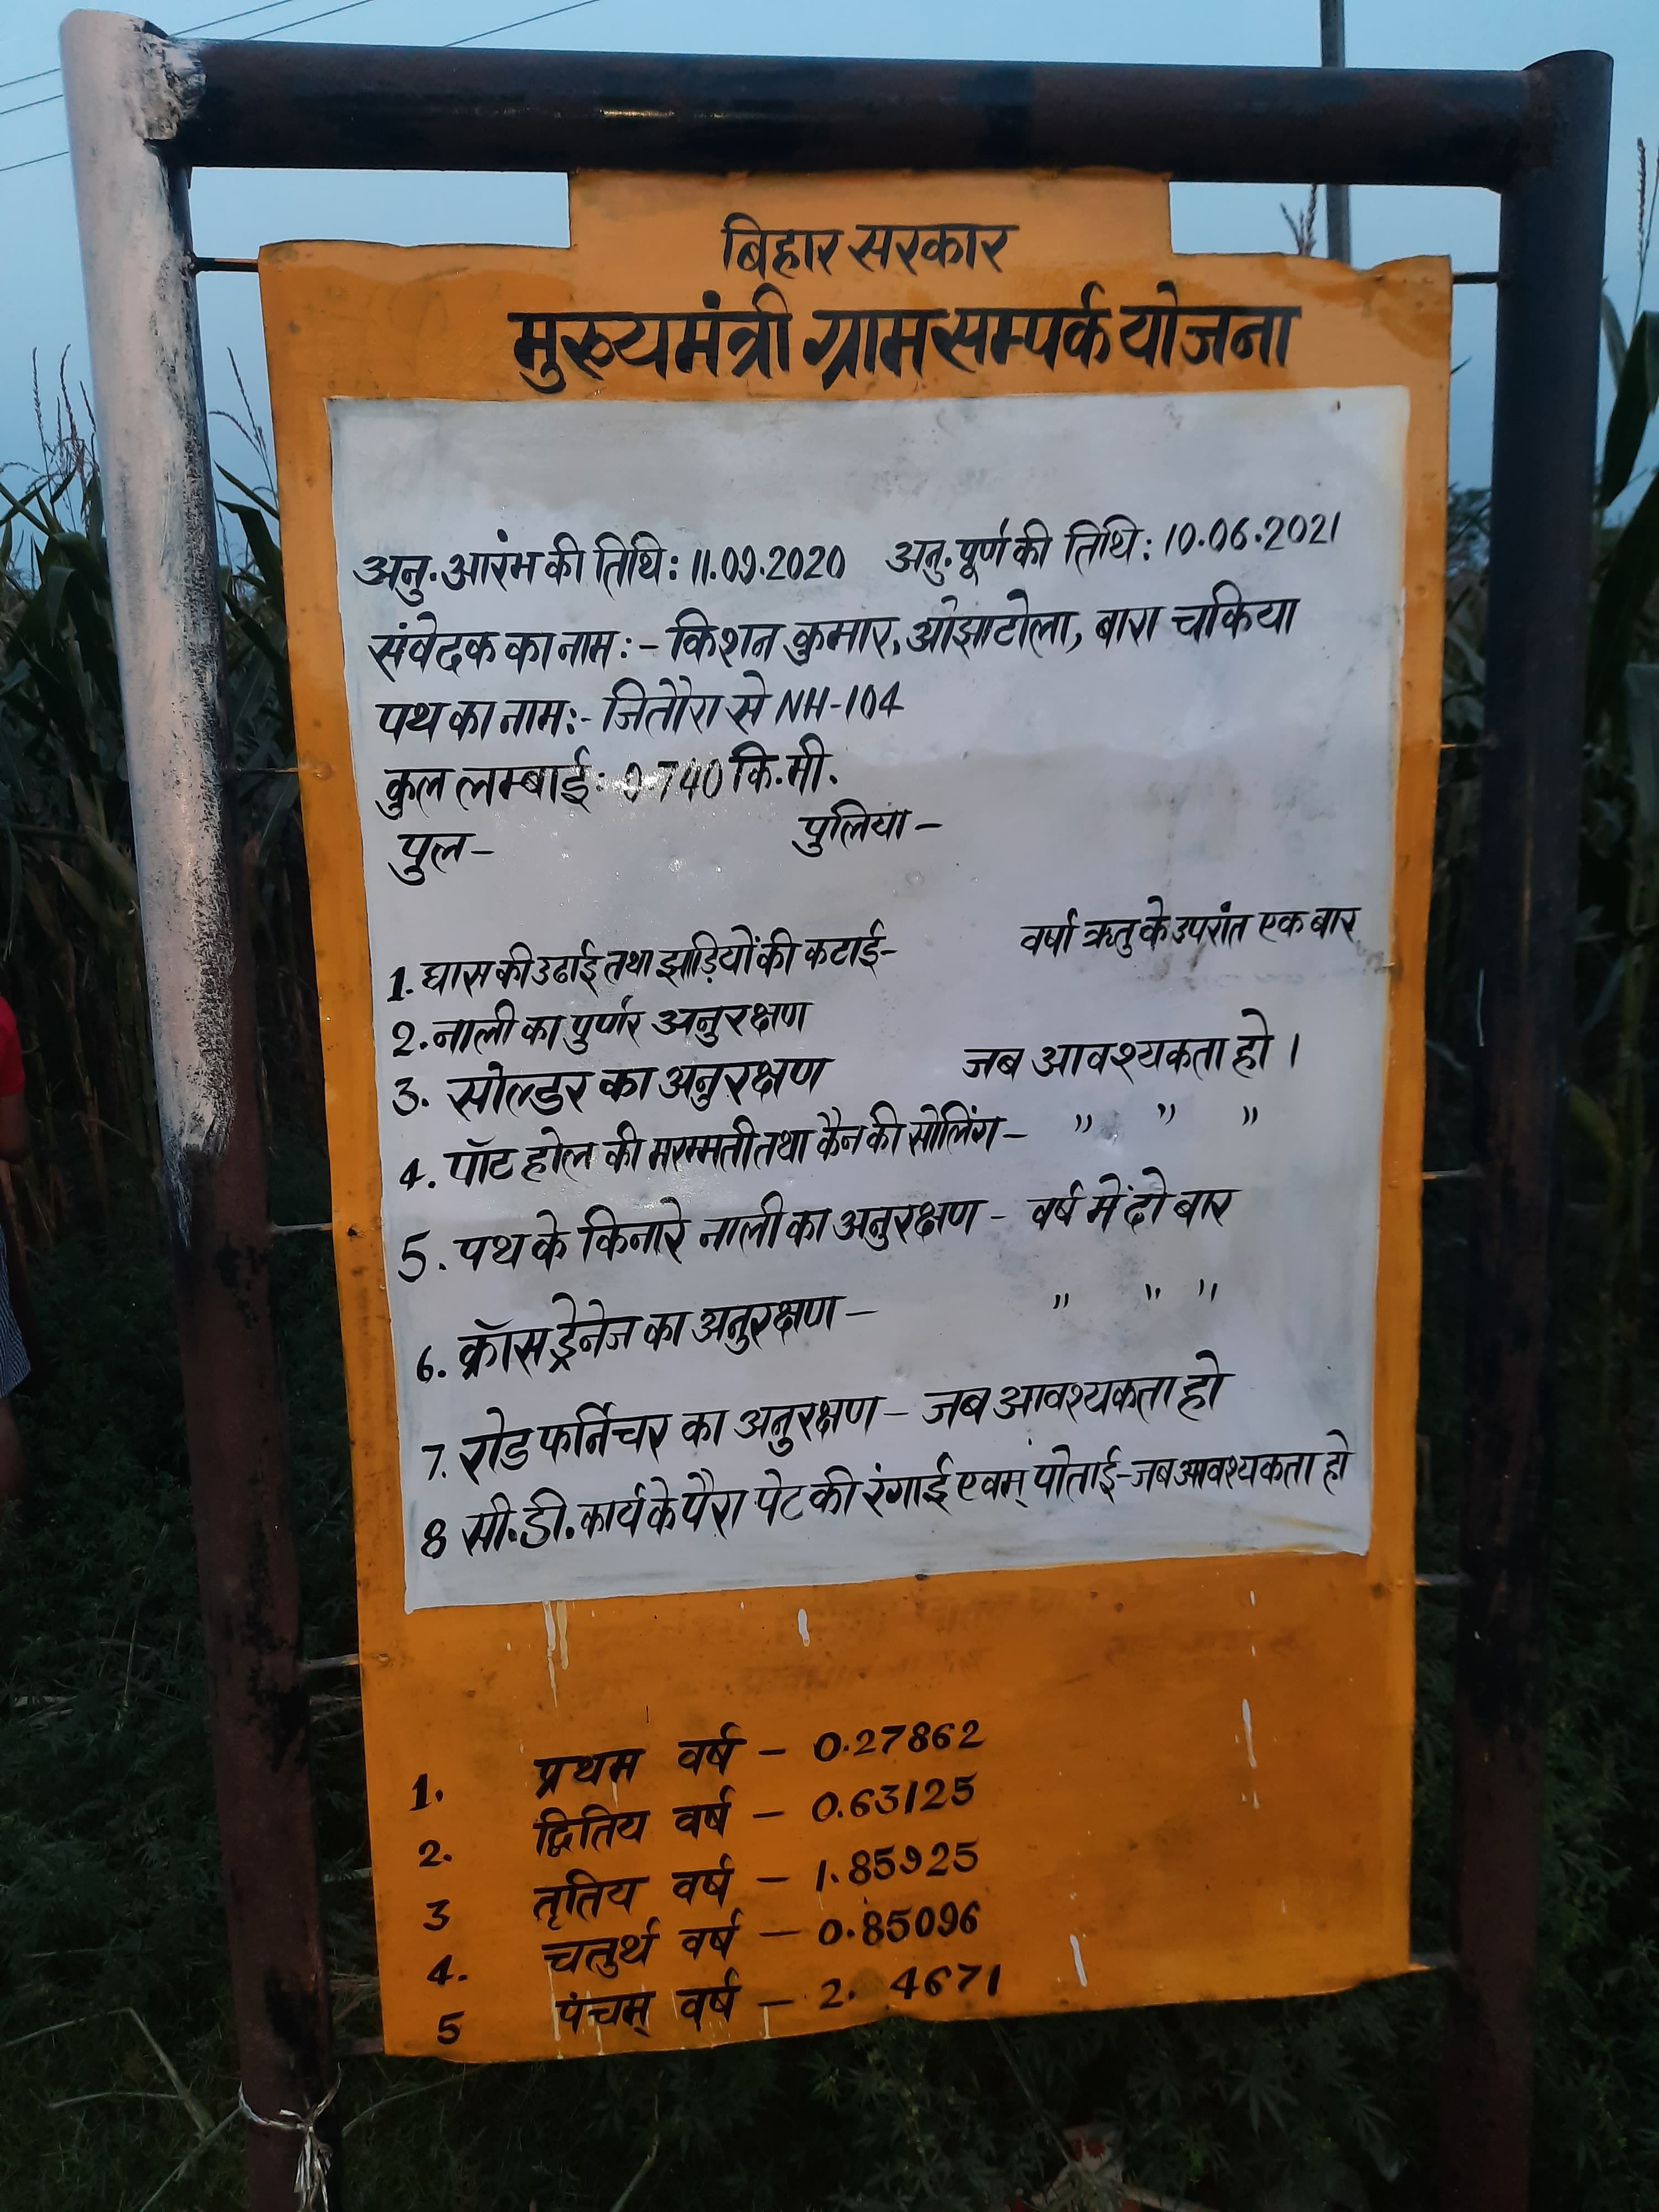 बिहार सरकार
मुख्यमंत्री ग्राम सम्पर्क योजना
अनु. आरंभ की तिथि: 11.09.2020 अनु. पूर्ण की तिथि: 10.06.2021
संवेदक का नाम:- किशन कुमार, ओझाटोला, बारा चकिया
पथ का नाम:- जितौरा से NH-104
कुल लम्बाई: 0.740 कि.मी.
पुल- पुलिया-
1. घास की उढाई तथा झाड़ियों की कटाई- वर्षा ऋतु के उपरांत एक बार
2. नाली का पुर्णर अनुरक्षण
3. सोल्डर का अनुरक्षण जब आवश्यकता हो।
4. पॉट होल की मरम्मती तथा कैन की सोलिंग- " " "
5. पथ के किनारे नाली का अनुरक्षण- वर्ष में दो बार
6. क्रॉस ड्रेनेज का अनुरक्षण- " " "
7. रोड फर्निचर का अनुरक्षण- जब आवश्यकता हो
8 सी.डी. कार्य के पैरा पेट की रंगाई एवम् पोताई- जब आवश्यकता हो
1. प्रथम वर्ष - 0.27862
2. द्वितिय वर्ष - 0.63125
3 तृतिय वर्ष - 1.85925
4. चतुर्थ वर्ष - 0.85096
5 पंचम् वर्ष - 2. 4671